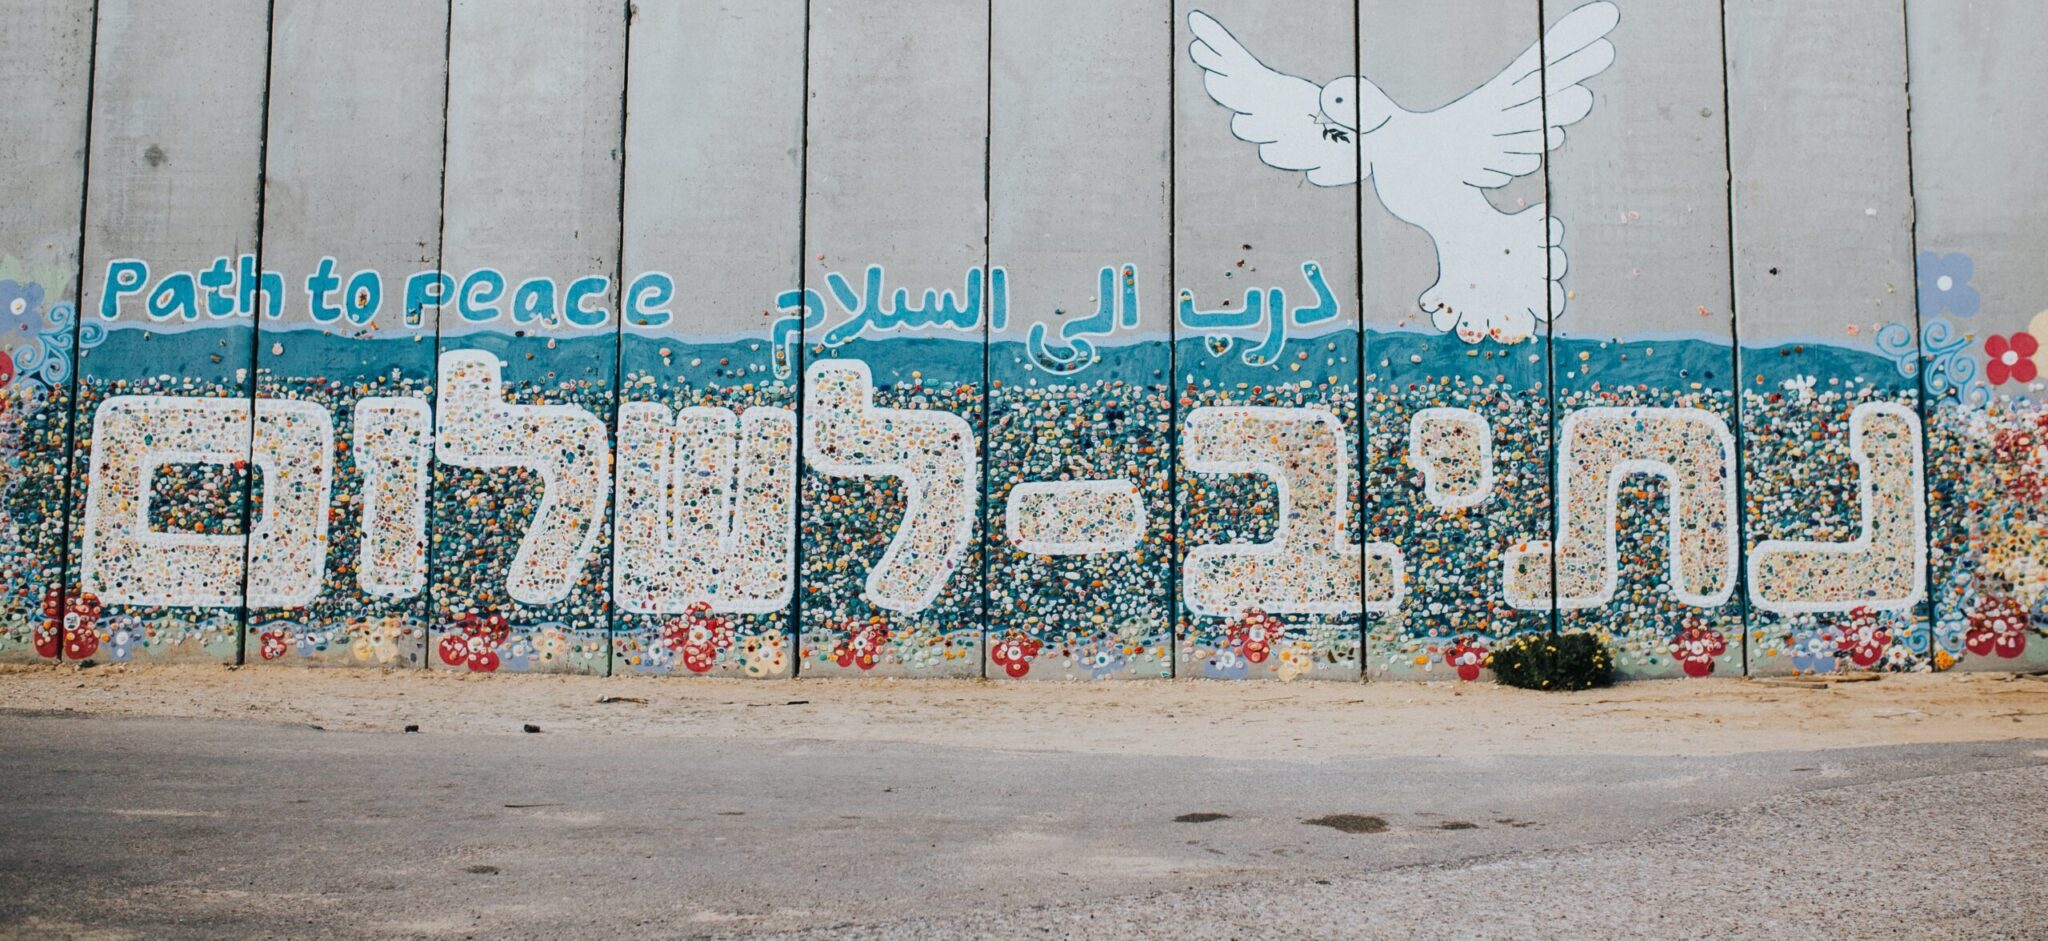 Path to peace
درب الى السلام
נתיב-לשלום